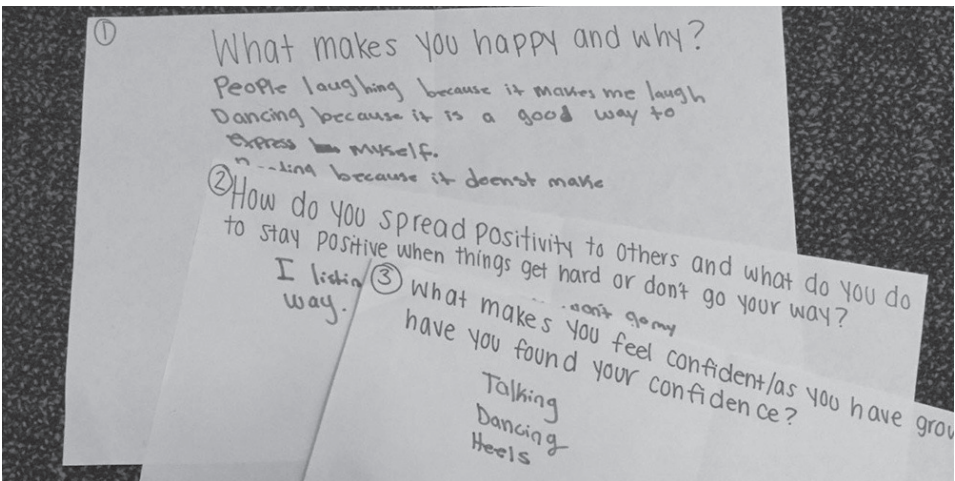 ①
What makes you happy and why?
People laughing because it makes me laugh
Dancing because it is a good way to
express myself.
because it doenst make
② How do you spread positivity to others and what do you do
to stay positive when things get hard or don't go your way?
I listin
don't go my
way.
③ What makes you feel confident/as you have grow
have you found your confidence?
Talking
Dancing
Heels